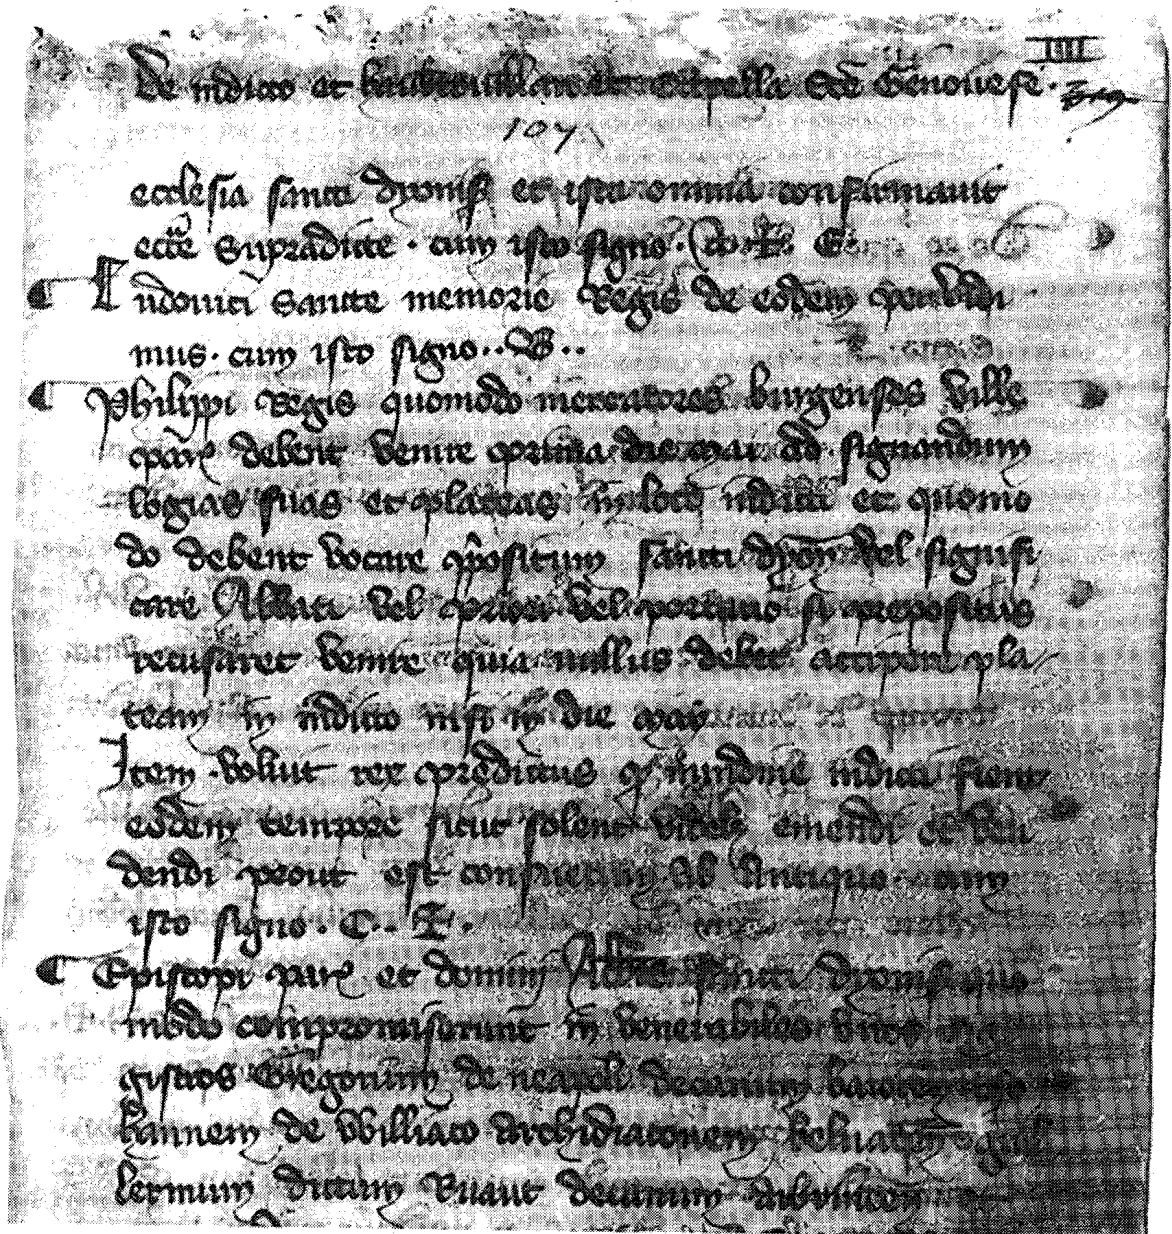 IIII
De indicto et capella Sce Genovefe.
107
ecclesia sancti dyonisii et ista omnia confirmavit
eccle supradicte. cum isto signo.
Ludovici Sancte memorie Regis de eodem
mus. cum isto signo.. B..
Philippi Regis quomodo mercatores burgenses ville
par debent venire prima die maii ad signandum
logias suas et plateas in loco indicti et quomo
do debent vocare ppositum sancti dyon vel signifi
care Abbati vel priori vel portario si prepositus
recusaret venire quia nullus debet accipere pla
team in indicto nisi in die maii
Item voluit rex predictus q nundine indicti fient
eodem tempore sicut solent emendi et ven
dendi prout est consuetum ab antiquo. cum
isto signo. C.. T.
Episcopi par et domini Abbis sancti dyonisii quo
modo compromiserunt in venerabiles viros ma
gistros Gregorium de neapoli decanum baiocen
hannem de Villiaco archidiaconem belvacen
lermum dictum Ruaut decanum